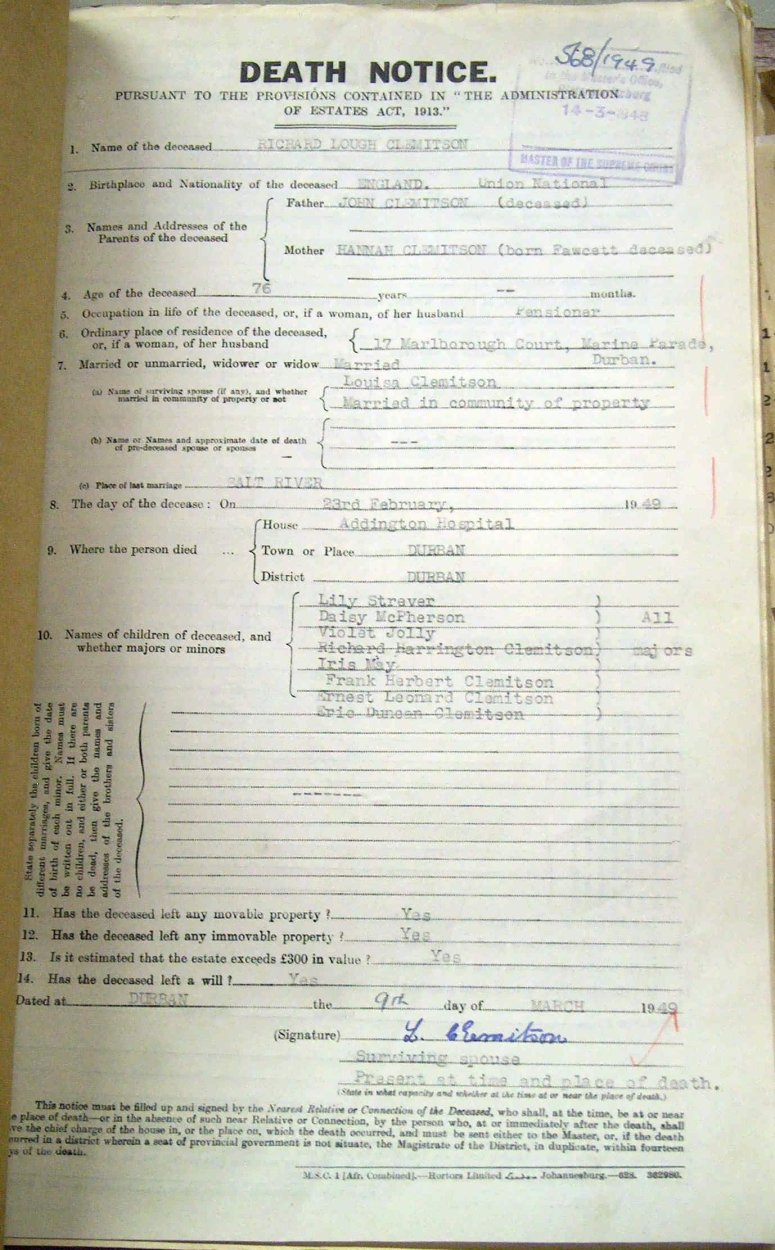 568/1949
DEATH NOTICE.
PURSUANT TO THE PROVISIONS CONTAINED IN "THE ADMINISTRATION
OF ESTATES ACT, 1913."
in the Master's Office,
14-3-1949
MASTER OF THE SUPREME COURT
1. Name of the deceased RICHARD LOUGH CLEMITSON
2. Birthplace and Nationality of the deceased ENGLAND. Union National
3. Names and Addresses of the Parents of the deceased
Father JOHN CLEMITSON (deceased)
Mother HANNAH CLEMITSON (born Fawcett deceased)
4. Age of the deceased 76 years -- months.
5. Occupation in life of the deceased, or, if a woman, of her husband Pensioner
6. Ordinary place of residence of the deceased,
or, if a woman, of her husband 17 Marlborough Court, Marine Parade,
Durban.
7. Married or unmarried, widower or widow Married
(a) Name of surviving spouse (if any), and whether
married in community of property or not
Louisa Clemitson
Married in community of property
(b) Name or Names and approximate date of death
of pre-deceased spouse or spouses ---
(c) Place of last marriage SALT RIVER
8. The day of the decease: On 23rd February, 1949
9. Where the person died ...
House Addington Hospital
Town or Place DURBAN
District DURBAN
10. Names of children of deceased, and
whether majors or minors
Lily Strever )
Daisy McPherson ) All
Violet Jolly )
Richard Harrington Clemitson) majors
Iris May )
Frank Herbert Clemitson )
Ernest Leonard Clemitson )
Eric Duncan Clemitson )
State separately the children born of
different marriages, and give the date
of birth of each minor. Names must
be written out in full. If there are
no children, and either or both parents
be dead, then give the names and
addresses of the brothers and sisters
of the deceased.
-------
11. Has the deceased left any movable property? Yes
12. Has the deceased left any immovable property? Yes
13. Is it estimated that the estate exceeds £300 in value? Yes
14. Has the deceased left a will? Yes
Dated at DURBAN the 9th day of MARCH 1949
(Signature) L. Clemitson
Surviving spouse
Present at time and place of death.
(State in what capacity and whether at the time at or near the place of death.)
This notice must be filled up and signed by the Nearest Relative or Connection of the Deceased, who shall, at the time, be at or near
e place of death—or in the absence of such near Relative or Connection, by the person who, at or immediately after the death, shall
ve the chief charge of the house in, or the place on, which the death occurred, and must be sent either to the Master, or, if the death
curred in a district wherein a seat of provincial government is not situate, the Magistrate of the District, in duplicate, within fourteen
ys of the death.
M.S.C. 1 [Afr. Combined].—Hortors Limited Johannesburg.—628. 362980.